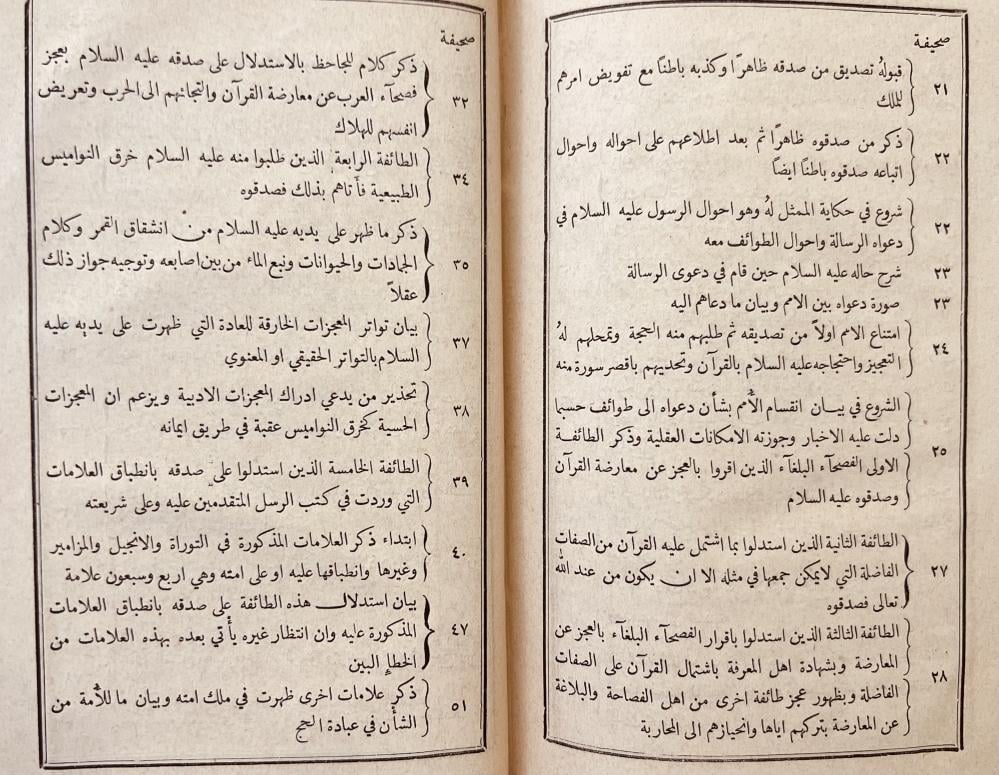 صحيفة
٢١ قبولهُ تصديق من صدقه ظاهرًا وكذبه باطنًا مع تفويض امرهم
للملك
٢٢ ذكر من صدقوه ظاهرًا ثم بعد اطلاعهم على احواله واحوال
اتباعه صدقوه باطنًا ايضاً
٢٢ شروع في حكاية الممثل لهُ وهو احوال الرسول عليه السلام في
دعواه الرسالة واحوال الطوائف معه
٢٣ شرح حاله عليه السلام حين قام في دعوى الرسالة
٢٣ صورة دعواه بين الامم وبيان ما دعاهم اليه
٢٤ امتناع الامم اولاً من تصديقه ثم طلبهم منه الحجة وتمحلهم لهُ
التعجيز واحتجاجه عليه السلام بالقرآن وتحديهم باقصر سورة منه
الشروع في بيان انقسام الأمم بشأن دعواه الى طوائف حسبما
دلت عليه الاخبار وجوزته الامكانات العقلية وذكر الطائفة
٢٥ الاولى الفصحآء البلغآء الذين اقروا بالعجز عن معارضة القرآن
وصدقوه عليه السلام
الطائفة الثانية الذين استدلوا بما اشتمل عليه القرآن من الصفات
٢٧ الفاضلة التي لايمكن جمعها في مثله الا ان يكون من عند الله
تعالى فصدقوه
الطائفة الثالثة الذين استدلوا باقرار الفصحآء البلغآء بالعجز عن
المعارضة وبشهادة اهل المعرفة باشتمال القرآن على الصفات
٢٨ الفاضلة وبظهور عجز طائفة اخرى من اهل الفصاحة والبلاغة
عن المعارضة بتركهم اياها وانحيازهم الى المحاربة
صحيفة
ذكر كلام للجاحظ بالاستدلال على صدقه عليه السلام بعجز
٣٢ فصحآء العرب عن معارضة القرآن والتجائهم الى الحرب وتعريض
انفسهم للهلاك
٣٤ الطائفة الرابعة الذين طلبوا منه عليه السلام خرق النواميس
الطبيعية فأتاهم بذلك فصدقوه
ذكر ما ظهر على يديه عليه السلام من انشقاق القمر وكلام
٣٥ الجمادات والحيوانات ونبع الماء من بين اصابعه وتوجيه جواز ذلك
عقلاً
٣٧ بيان تواتر المعجزات الخارقة للعادة التي ظهرت على يديه عليه
السلام بالتواتر الحقيقي او المعنوي
٣٨ تحذير من يدعي ادراك المعجزات الادبية ويزعم ان المعجزات
الحسية كخرق النواميس عقبة في طريق ايمانه
٣٩ الطائفة الخامسة الذين استدلوا على صدقه بانطباق العلامات
التي وردت في كتب الرسل المتقدمين عليه وعلى شريعته
٤٠ ابتداء ذكر العلامات المذكورة في التوراة والانجيل والمزامير
وغيرها وانطباقها عليه او على امته وهي اربع وسبعون علامة
بيان استدلال هذه الطائفة على صدقه بانطباق العلامات
٤٧ المذكورة عليه وان انتظار غيره يأتي بعده بهذه العلامات من
الخطإ البين
٥١ ذكر علامات اخرى ظهرت في ملك امته وبيان ما للأمة من
الشأن في عبادة الحج